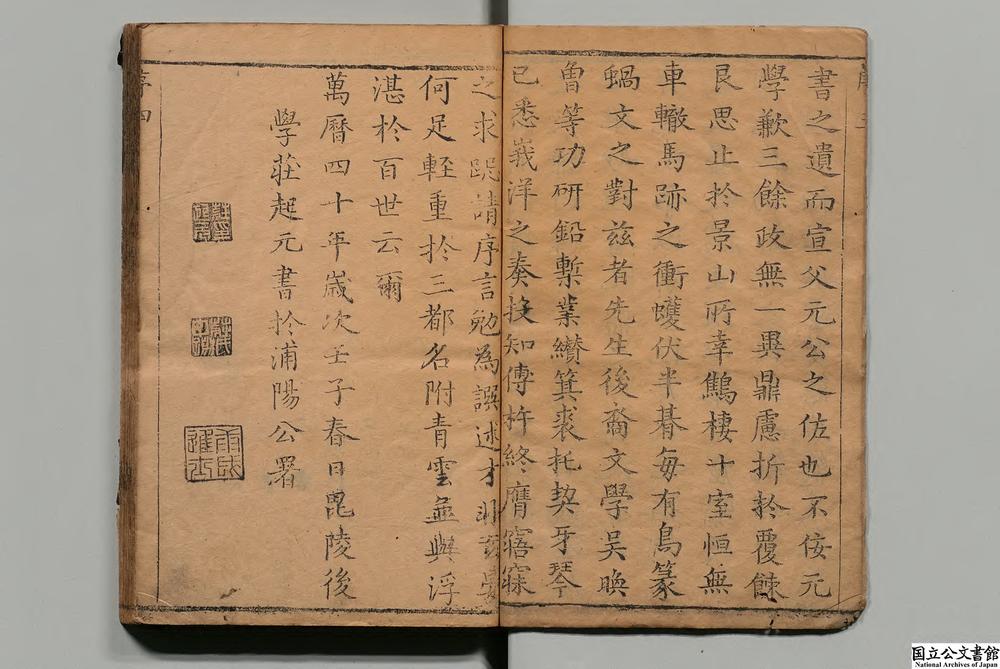 書之遺而宣父元公之佐也不佞元
學歉三餘政無一異鼎慮折於覆餗
艮思止於景山所幸鷦棲十室恒無
車轍馬跡之衝蠖伏半朞每有鳥篆
蝸文之對兹者先生後裔文學吳㬇
曾等功研鉛槧業纘箕裘托契牙琴
已悉峩洋之奏投知傅杵終膺寤寐
之求跽請序言勉為譔述才
何足輊重於三都名附青雲並與浮
湛於百世云爾
萬曆四十年歲次壬子春日毘陵後
學莊起元書於浦陽公署
序四
国立公文書館
National Archives of Japan